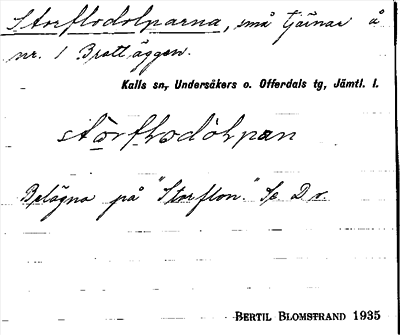 Storflodolparna, små tjärnar å
nr. 1 Brattäggen.
Kalls sn, Undersåkers o. Offerdals tg, Jämtl. l.
Belägna på "Storflon." Se D:o.
BERTIL BLOMSTRAND 1935